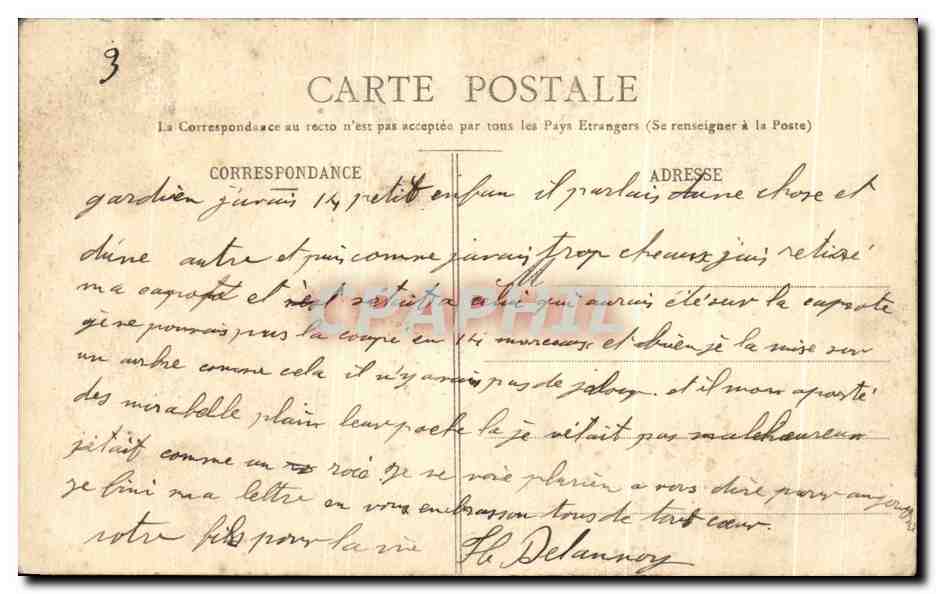 3
CARTE POSTALE
La Correspondance au recto n'est pas acceptée par tous les Pays Etrangers (Se renseigner à la Poste)
CORRESPONDANCE
ADRESSE
gardien j'avais 14 petit enfan il parlais dune chose et
dúne autre et puis comme javais trop cheaux jais retiré
ma capote et a celui qui aurais été sur la capote
je ne pouvais pas la coupé en 14 morceaux et bien jé la mise sur
un arbre comme cela il n'y avais pas de jaloux et il mon aporté
des mirabelle plain leur poche la je nétait pas malheureux
jétait comme un roié je ne voie plurien a vous dire pour aujourd
je fini ma lettre en vous embrassan tous de tout cœur.
votre fils pour la vie H Delannoy
CPAPHIL